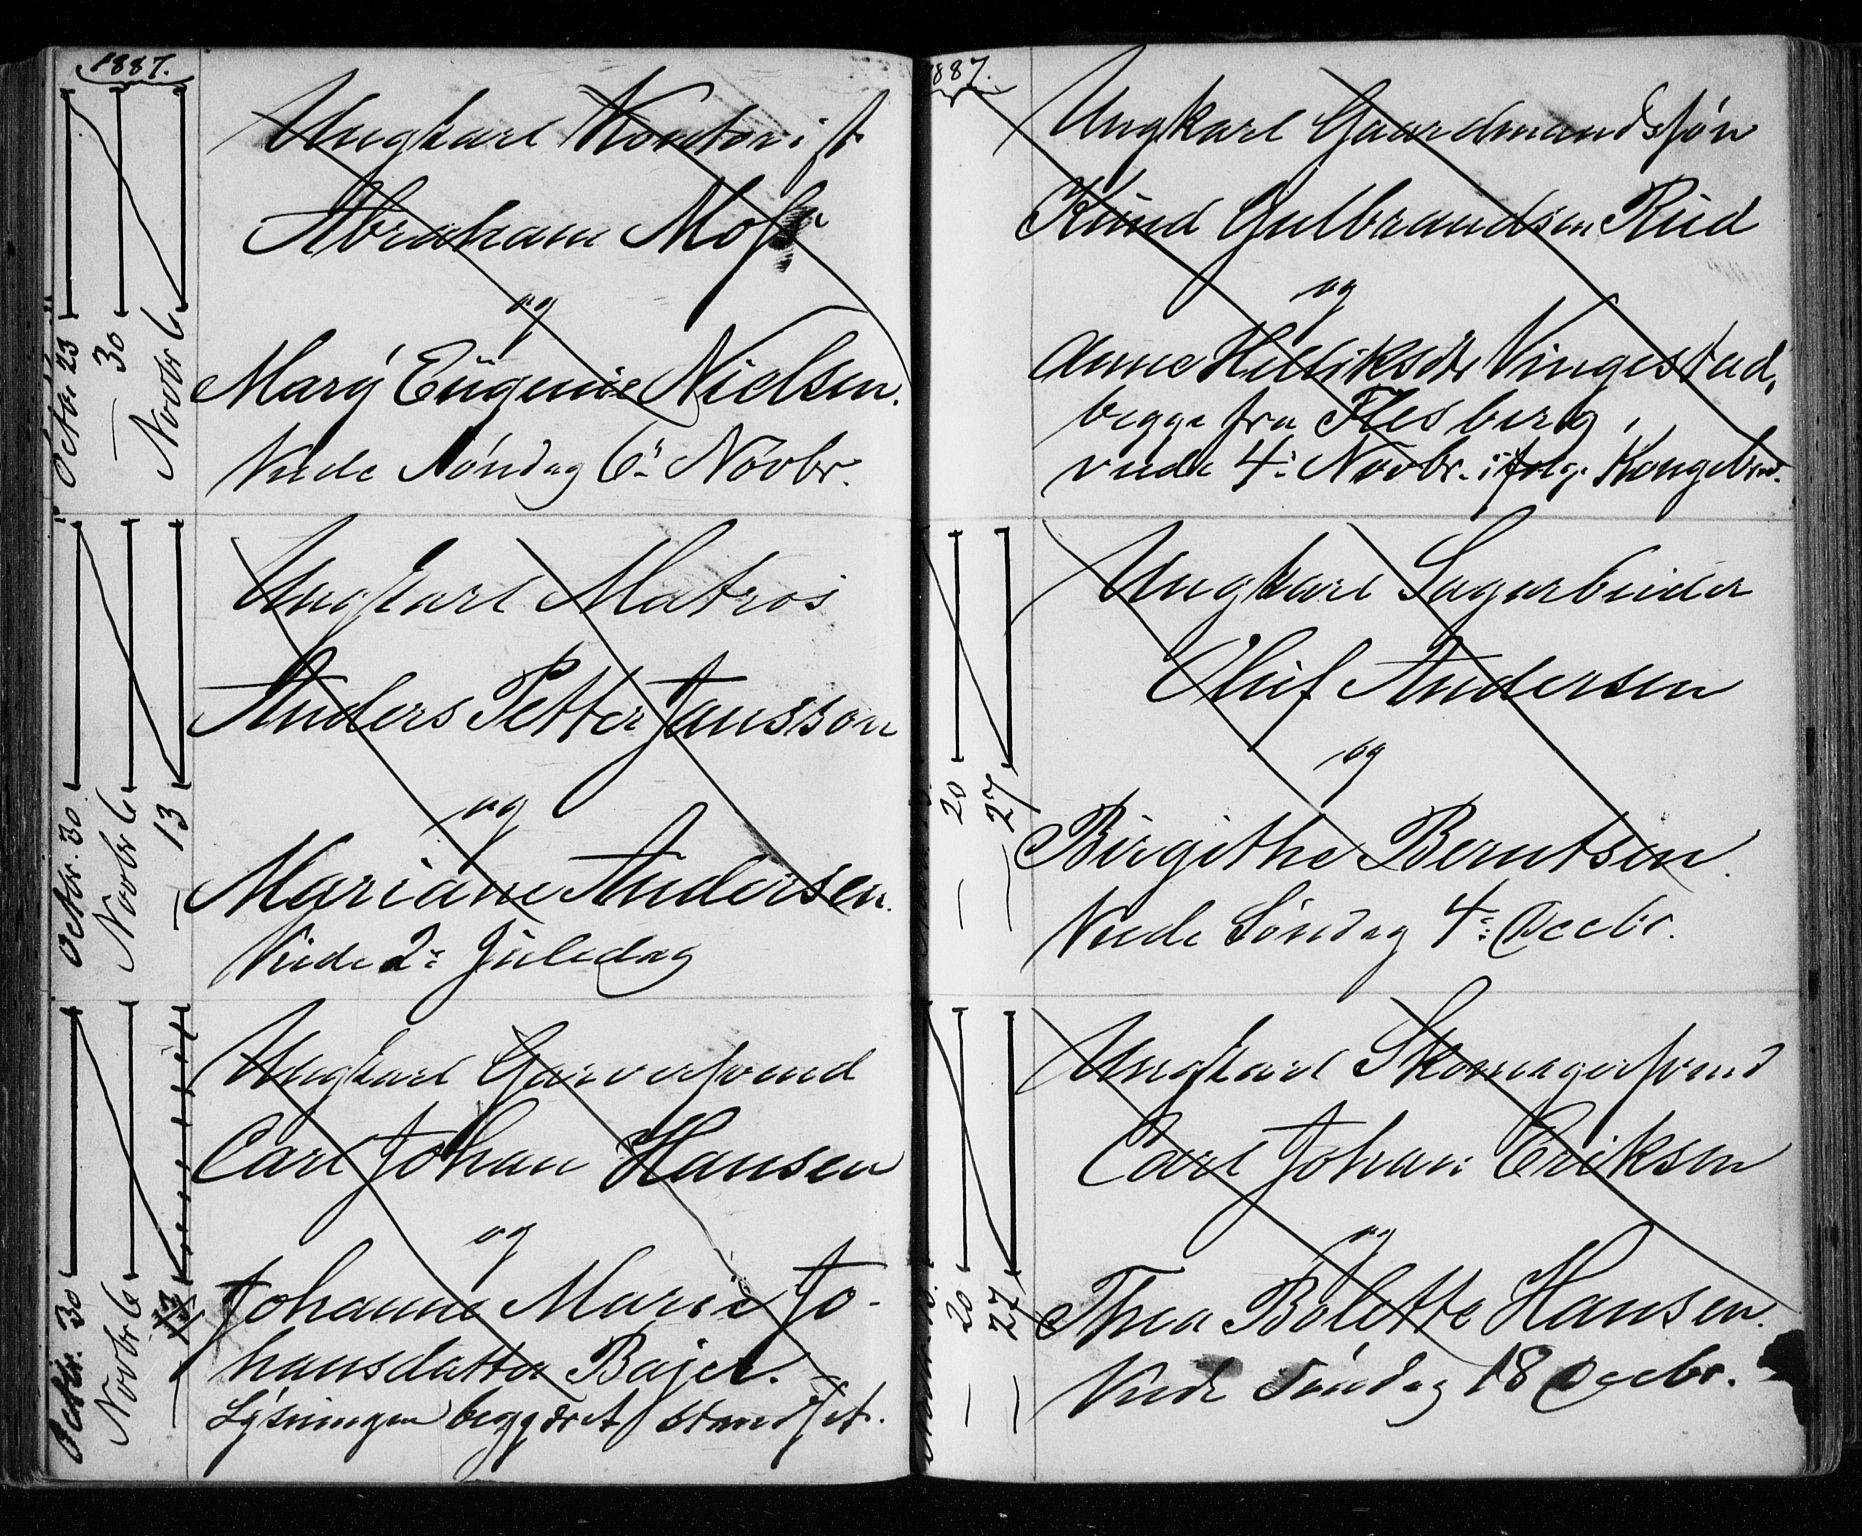 1887.
Octbr 23
— 30
Novbr 6
Ungkarl Kontorist
Abraham Moss
og
Mary Eugenie Nielsen.
Viede Søndag 6: Novbr.
Octbr. 30
Novbr 6
— 13
Ungkarl Matros
Anders Petter Jansson
og
Mariane Andersen.
Viede 2: Juledag
Octbr. 30
Novbr 6
— 13
Ungkarl Garversvend
Carl Johan Hansen
og
Johanne Marie Jo-
hansdatter Bajer.
Lysningen begjæret standset.
1887.
Ungkarl Gaardmandssøn
Knud Gulbrandsen Rud
og
Anne Helliksdr Vingestad,
begge fra Flesberg,
viede 4: Novbr. ifølge Kongebrev.
— 20
— 27
Ungkarl Sagarbeider
Oluf Andersen
og
Birgithe Berntsen.
Viede Søndag 4: Decbr.
— 20
— 27
Ungkarl Skomagersvend
Carl Johan Eriksen
og
Thea Bolette Hansen.
Viede Søndag 18 Decbr.